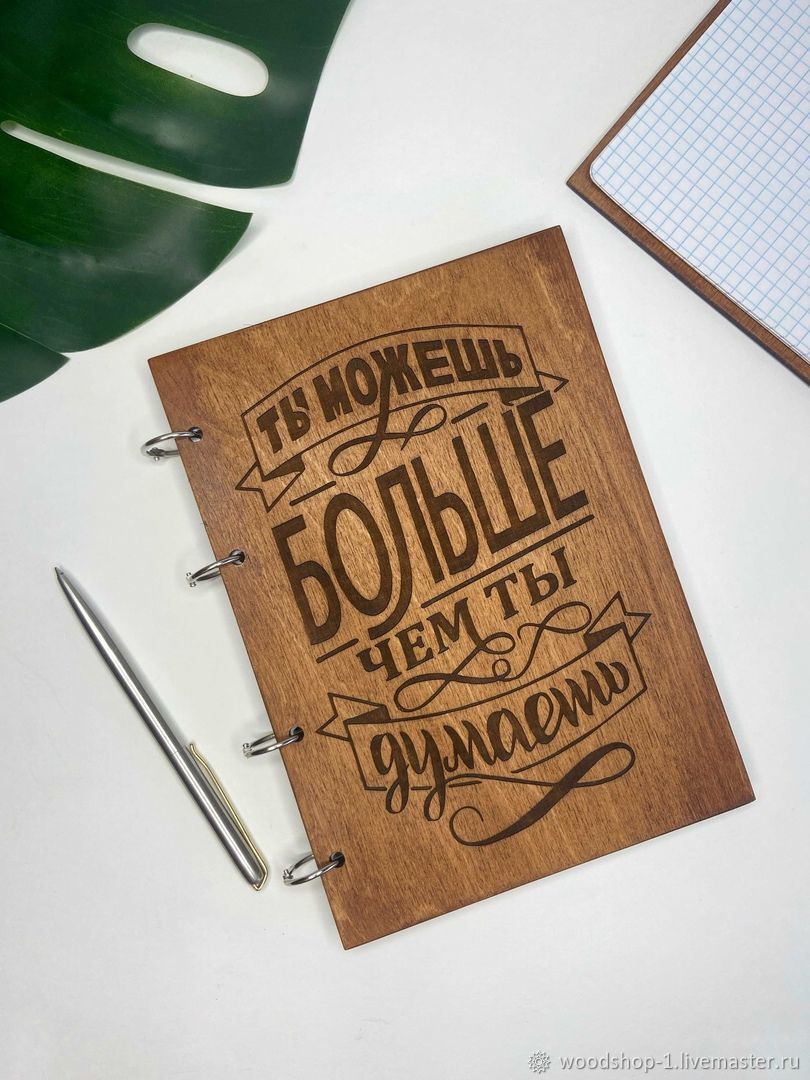 ТЫ МОЖЕШЬ
БОЛЬШЕ
ЧЕМ ТЫ
думаешь
woodshop-1.livemaster.ru